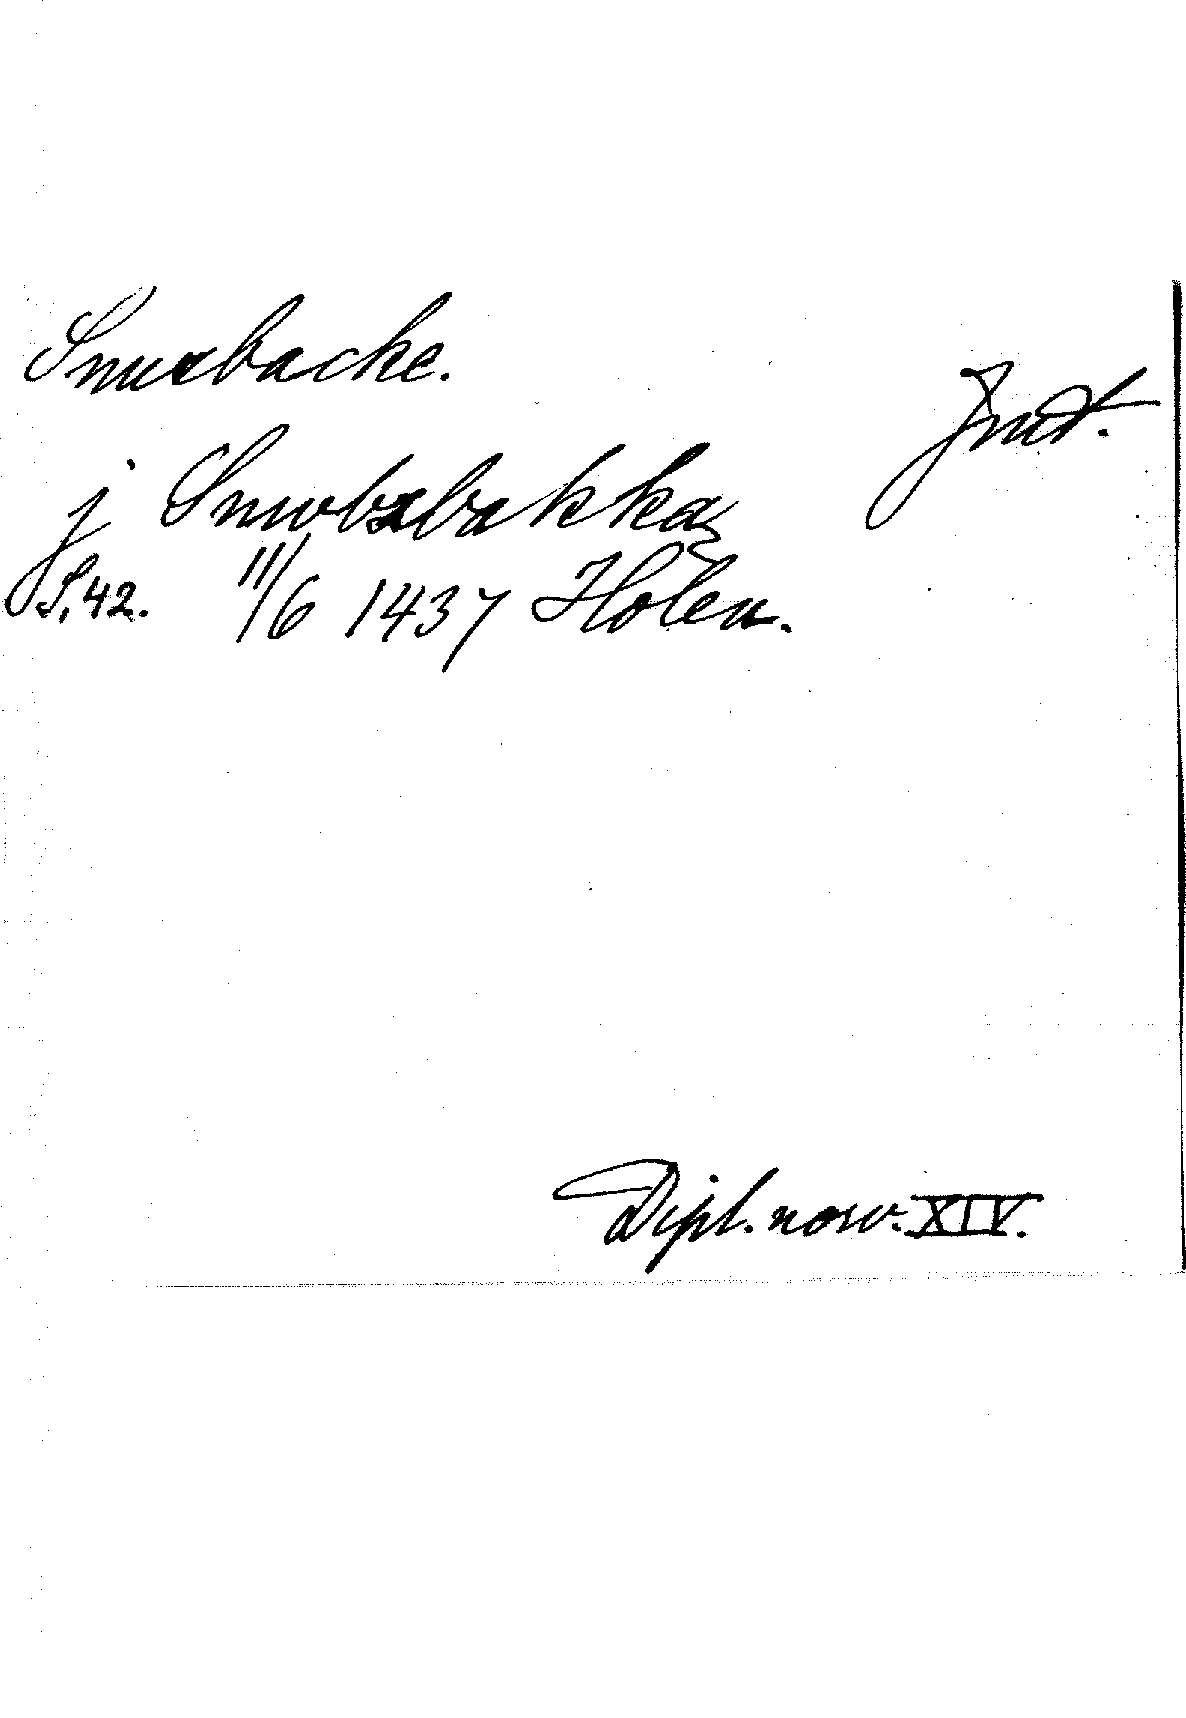 Snusbacke.
Jmt.
j Snwbzbakka
S. 42. 11/6 1437 Holen.
Dipl. norv. XIV.